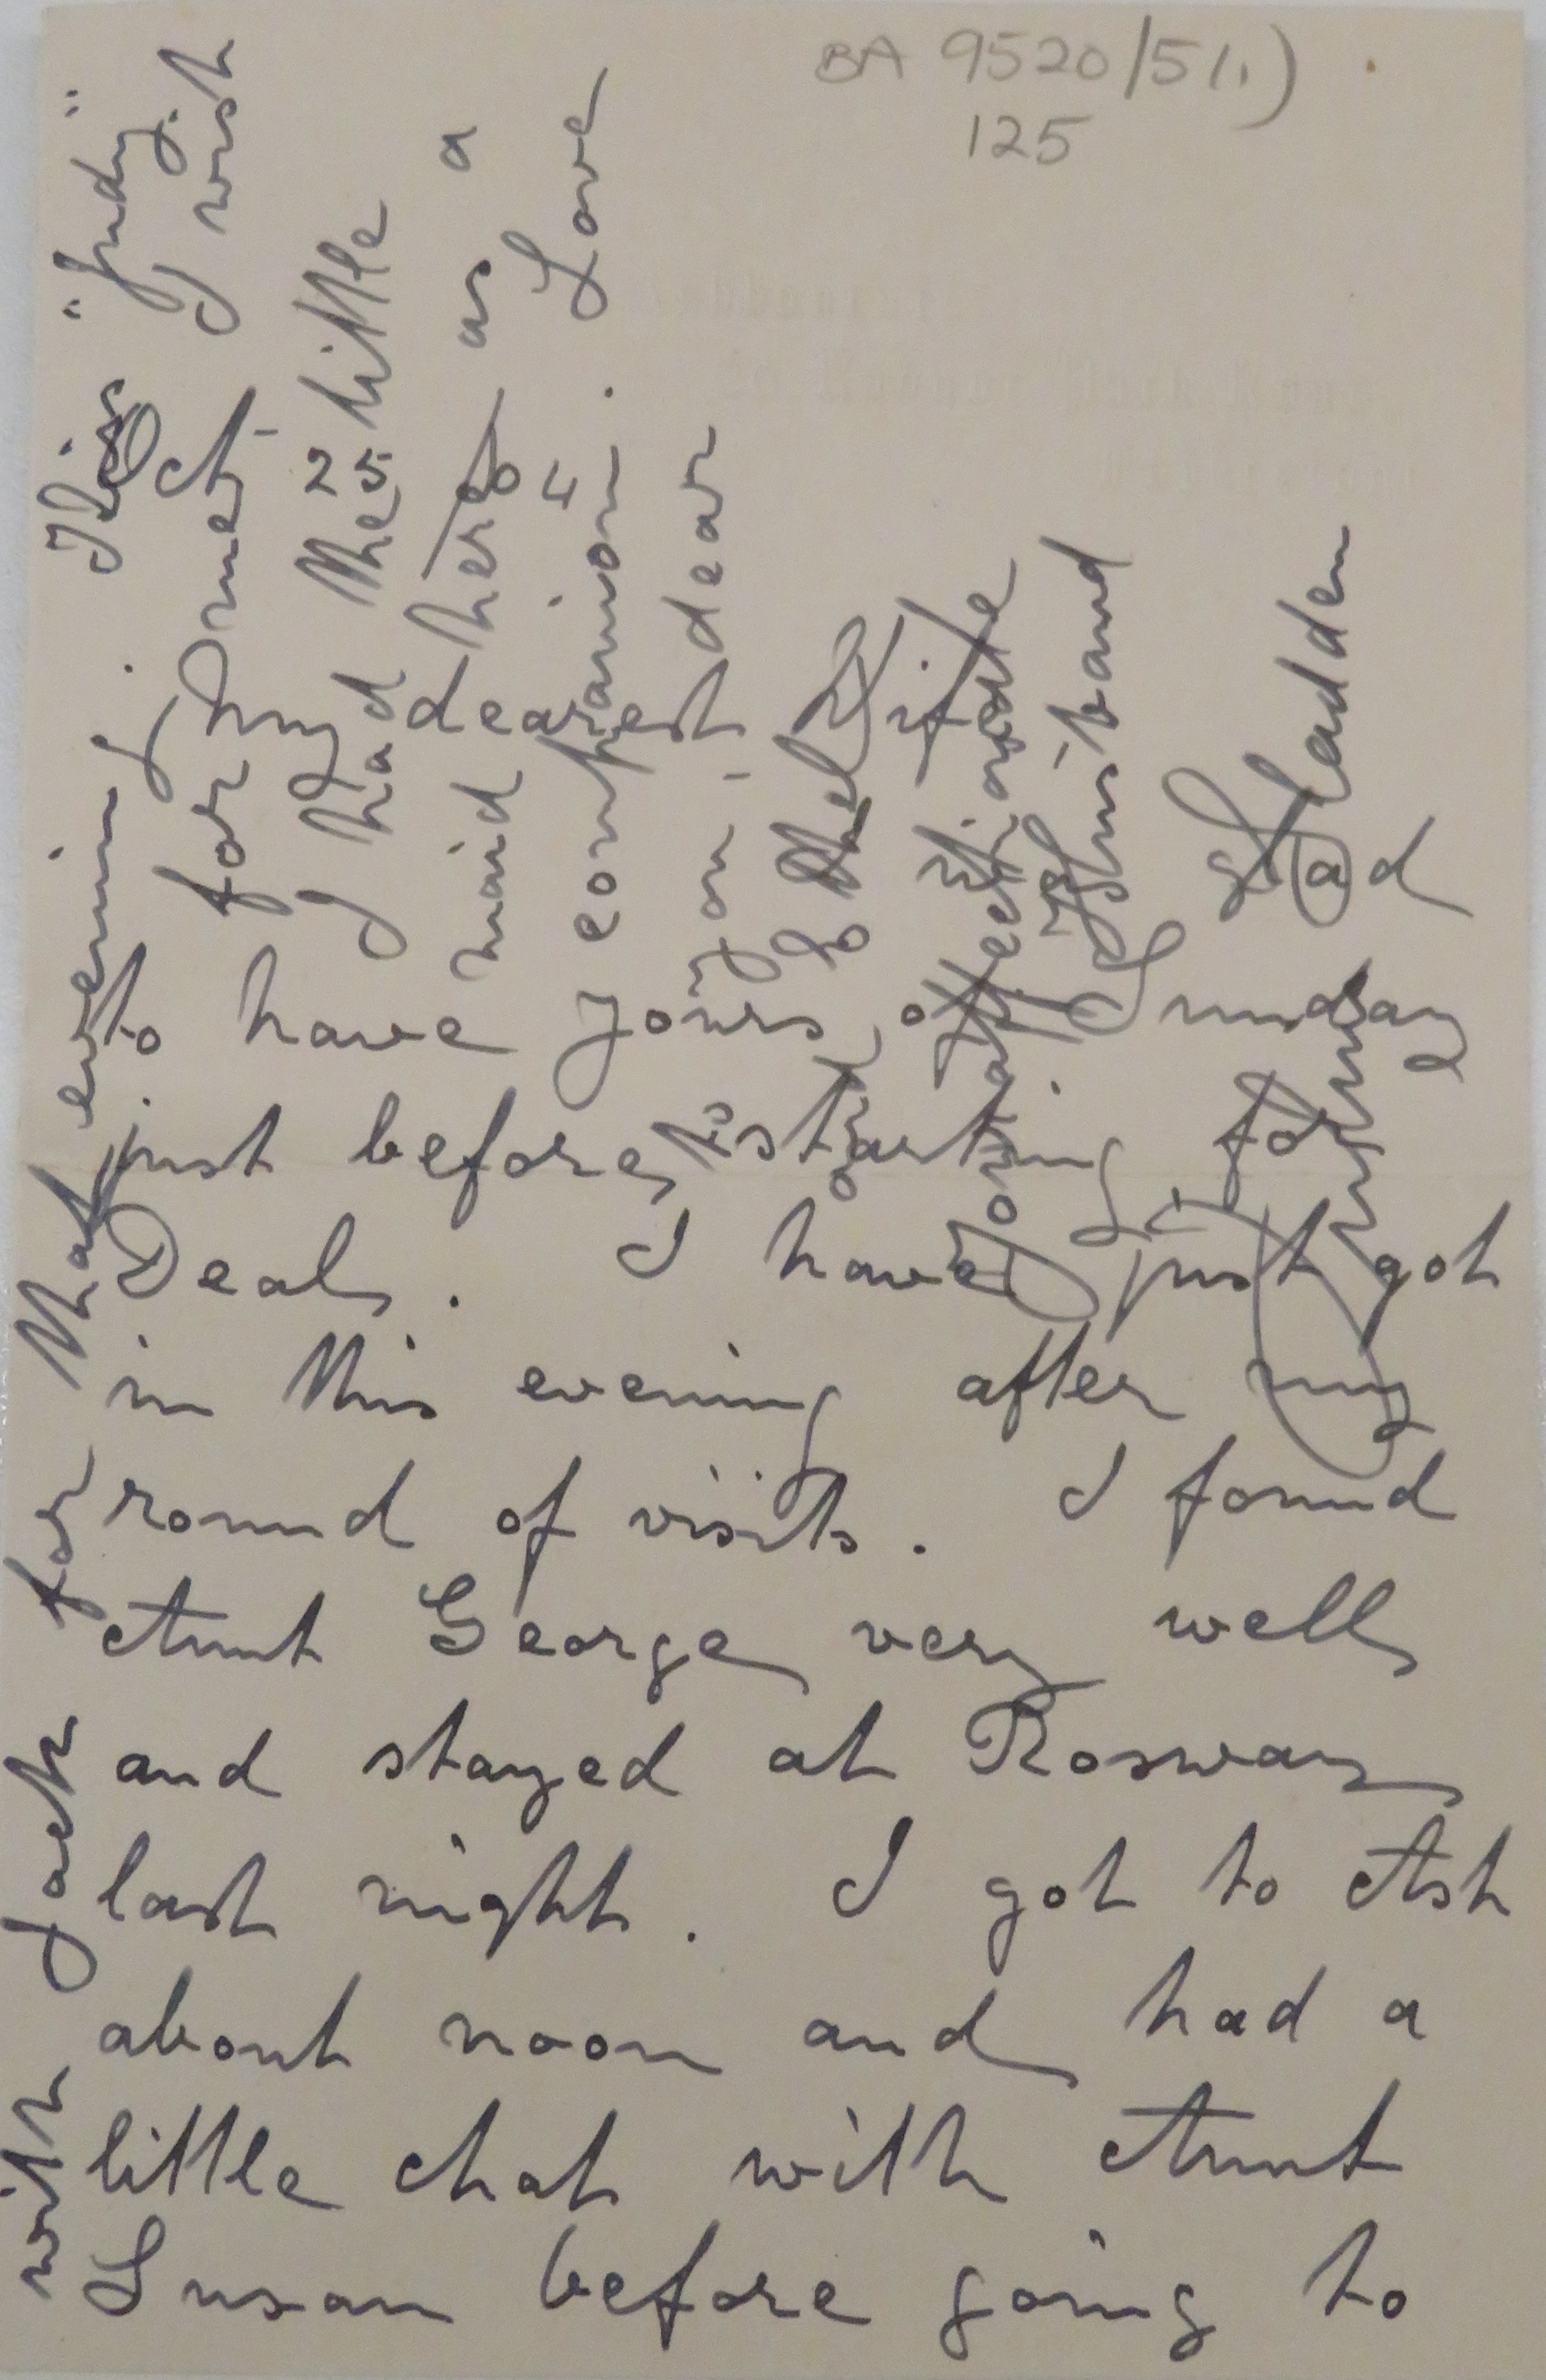 BA 9520/5(1.)
125
Oct 25/04
My dearest Wife
Glad
to have yours of Sunday
just before starting for
Deal. I have just got
in this evening after my
round of visits. I found
Aunt George very well
and stayed at Rosway
last night. I got to Ash
about noon and had a
little chat with Aunt
Susan before going to
with Jack for that evening. This "Judy"
for me I wish
I had the little
maid here as a
companion. Love
you dear
Ethel
Your affectionate
Husband